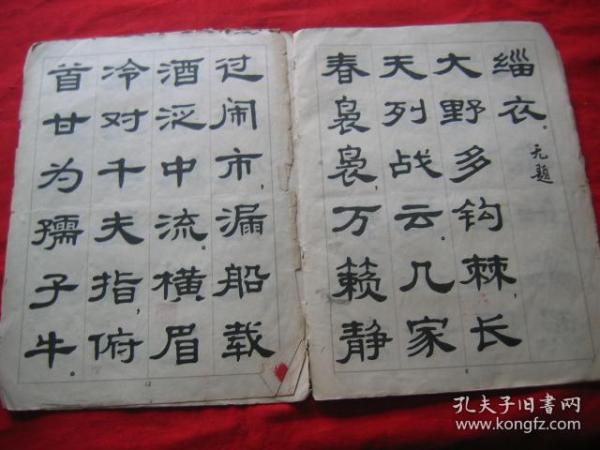 缁衣。
无题
大野多钩棘，长
天列战云。几家
春袅袅，万籁静
过闹市，漏船载
酒泛中流。横眉
冷对千夫指，俯
首甘为孺子牛。
孔夫子旧书网
www.kongfz.com